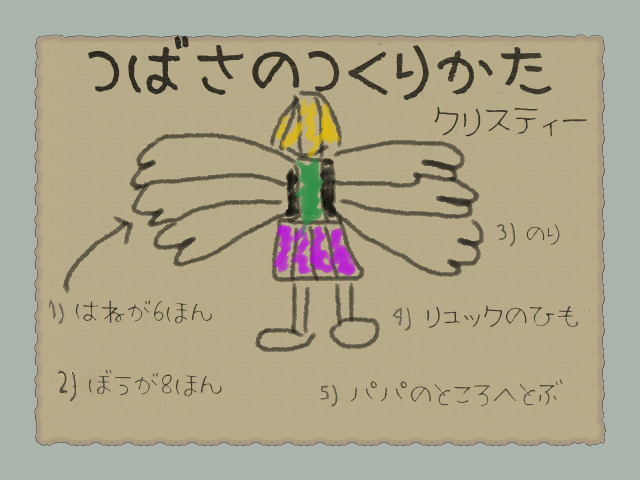 つばさのつくりかた
クリスティー
1) はねが6ほん
2) ぼうが8ほん
3) のり
4) リュックのひも
5) パパのところへとぶ